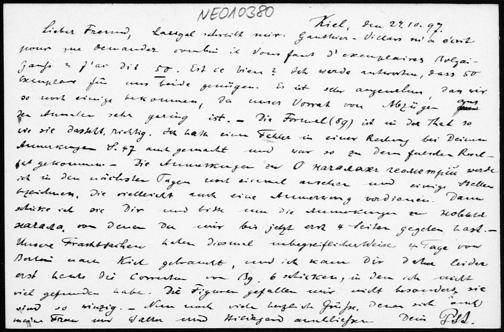 NE010380
Kiel, den 22.10.97.
Lieber Freund, Laengel schreibt mir: Gauthier-Villars m'a écrit
pour me demander combien il vous faut d'exemplaires Bolyai-
Gauss & j'ai dit 50. Est ce bien? Ich werde antworten, dass 50
Exemplare für uns beide genügen. Es ist sehr angenehm, dass wir
so noch einige bekommen, da unser Vorrat von Abzügen aus
den Annalen sehr gering ist. – Die Formel (59) ist in der That so
wie sie dasteht, richtig. Ich hatte einen Fehler in einer Rechnung bei Deinen
Anmerkungen S. 47 aut gemacht und war so zu dem falschen Resul-
tat gekommen – Die Anmerkungen zu О началахъ геометріи werde
ich in den nächsten Tagen noch einmal ansehen und einige Stellen
bezeichnen, die vielleicht auch eine Anmerkung verdienen. Dann
schicke ich sie Dir und bitte um die Anmerkungen zu Новыя
начала, von denen Du mir bis jetzt erst 4 Seiten gegeben hast. –
Unsere Frachtsachen haben diesmal unbegreiflicherweise 4 Tage von
Berlin nach Kiel gebraucht, und ich kann Dir daher leider
erst heute die Correctur von Bg. 6 schicken, in dem ich nicht
viel gefunden habe. Die Figuren gefallen mir nicht besonders, sie
sind so winzig. – Nun noch viele herzliche Grüsse, denen sich auch
meine Frau und Walter und Hildegard anschliessen Dein